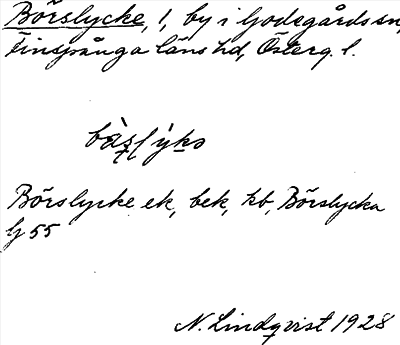 Börslycke, 1, by i Godegårds sn,
Finspånga läns hd, Österg. l.
Börslycke ek, bek, kb, Börslycka
Gj 55
N. Lindqvist 1928